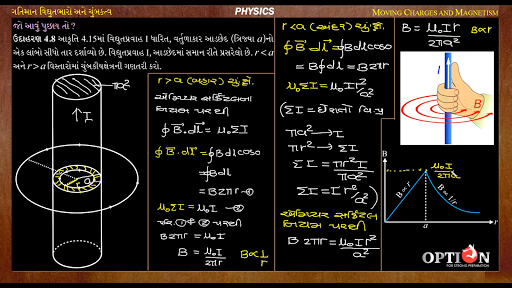 ગતિમાન વિદ્યુતભારો અને ચુંબકત્વ
PHYSICS
MOVING CHARGES AND MAGNETISM
જો આવું પુછાય તો ?
ઉદાહરણ 4.8 આકૃતિ 4.15માં વિદ્યુતપ્રવાહ I ધારિત, વર્તુળાકાર આડછેદ (ત્રિજ્યા a)નો
એક લાંબો સીધો તાર દર્શાવ્યો છે. વિદ્યુતપ્રવાહ I, આડછેદમાં સમાન રીતે પ્રસરેલો છે. r < a
અને r > a વિસ્તારોમાં ચુંબકીયક્ષેત્રની ગણતરી કરો.
πa²
↑ I
r > a (બહાર) શું હો.
એમ્પિયર સર્કિટલના
નિયમ પરથી
∮B⃗·dl⃗ = μ₀ΣI
∮B⃗·dl⃗ = ∮Bdlcos0
= B∮dl
= B2πr -①
μ₀ΣI = μ₀I -②
સમી.① = ② પરથી
B2πr = μ₀I
B = μ₀I/2πr
B∝1/r
r < a (અંદર) શું હો.
∮B⃗·dl⃗ = ∮Bdlcos0
= B∮dl = B2πr
μ₀ΣI = μ₀Ir²/a²
πa² → I
πr² → ΣI
ΣI = πr²I/πa²
ΣI = I r²/a²
એમ્પિયર સર્કિટલ
નિયમ પરથી
B 2πr = μ₀Ir²/a²
B = μ₀Ir/2πa²
B∝r
I
B
B
μ₀I/2πa
B∝r
B∝1/r
a
r
OPTION
FOR STRONG PREPARATION